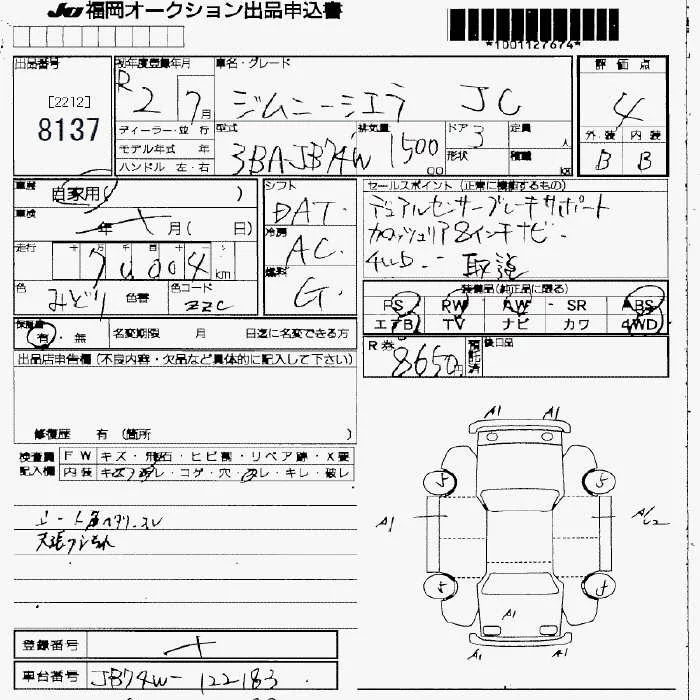 JU 福岡オークション出品申込書
*1001127674*
出品番号
[2212]
8137
初年度登録年月
R2 7月
車名・グレード
ジムニーシエラ JC
評価点
4
外装 内装
B B
ディーラー・並行
モデル年式 年
ハンドル 左・右
型式
3BA-JB74W
排気量
1500
cc
ドア 3
形状
定員
人
積載
kg
車歴
自家用( )
車検
年 月( 日)
走行
km
色
みどり
色替
色コード
ZZC
シフト
DAT
冷房
AC
燃料
G
セールスポイント (正常に機能するもの)
デュアルセンサーブレーキサポート
カロッツェリア8インチナビ
4WD
取説
装備品(純正品に限る)
PS RW AW - SR ABS
エアB TV ナビ カワ 4WD
保証書
有・無
名変期限 月 日迄に名変できる方
R券
8650円
預託済
後日品
出品店申告欄(不良内容・欠品など具体的に記入して下さい)
修復歴 有 (箇所 )
検査員記入欄
FW キズ・飛石・ヒビ割・リペア跡・X要
内装 キズ・汚レ・コゲ・穴・スレ・キレ・破レ
A1 A1
5 5
A1
5
A1
A1 A1
登録番号
車台番号 JB74W-122183